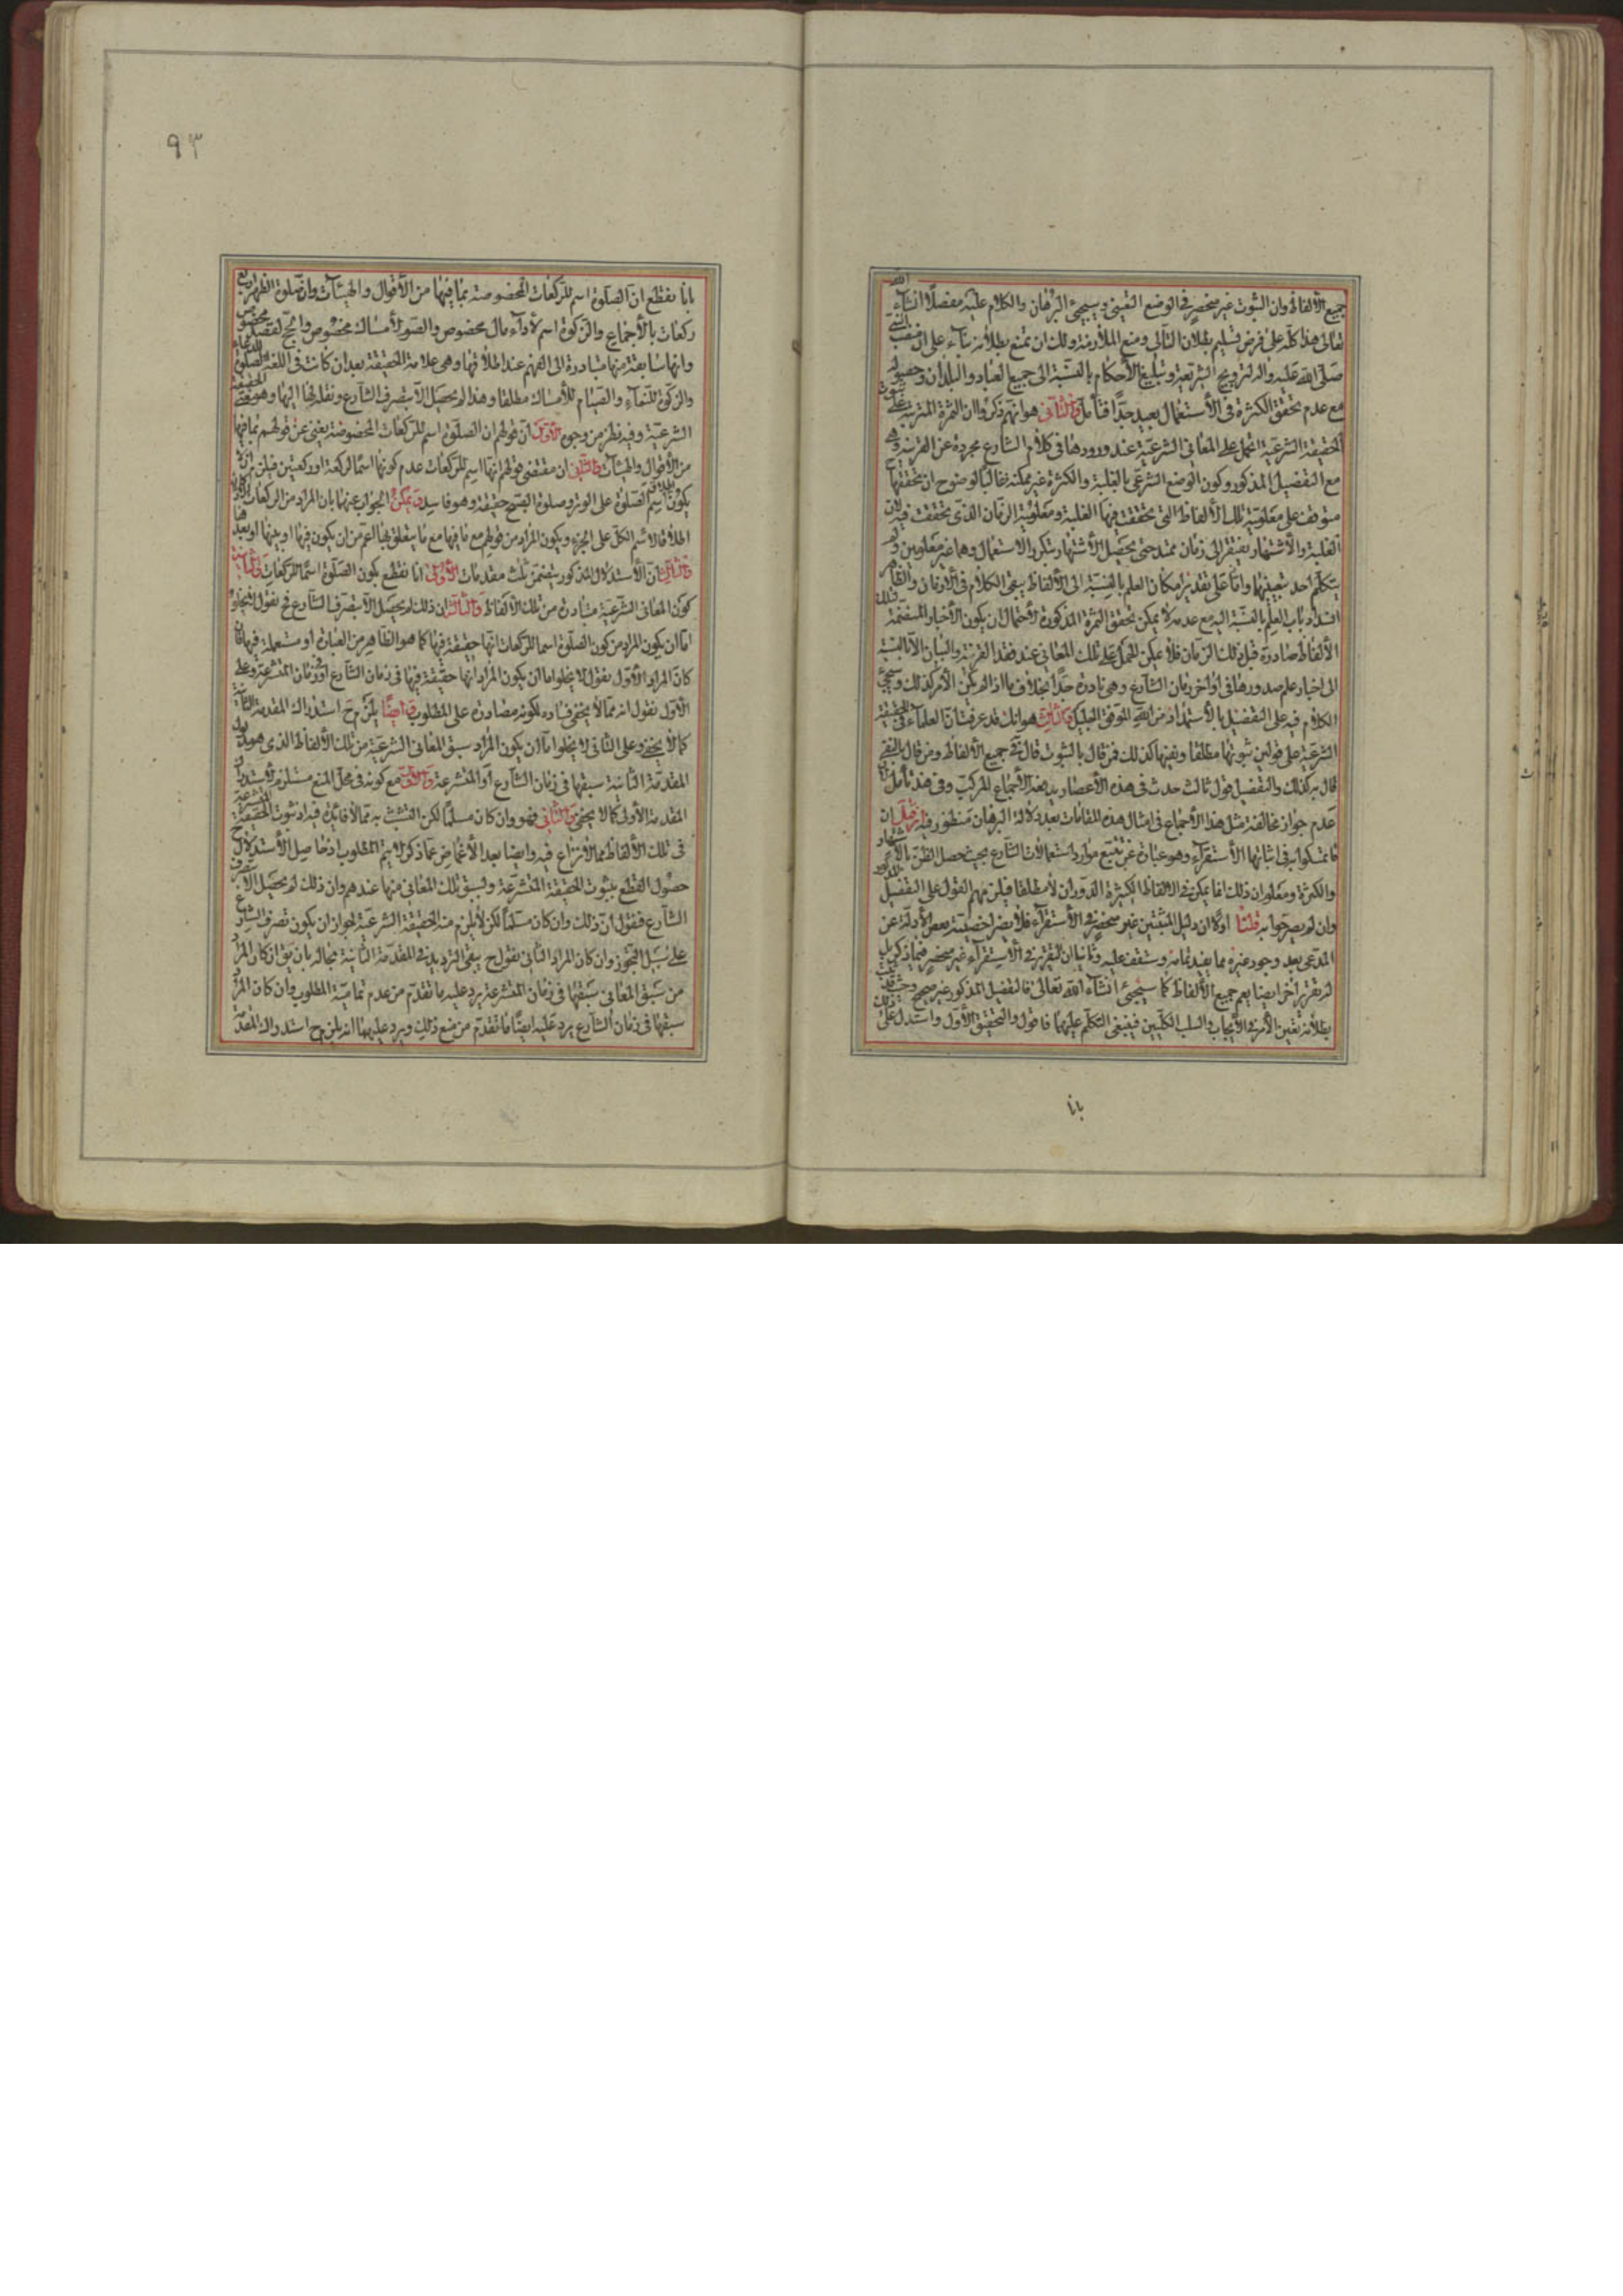 جميع الألفاظ وان الثبوت غير منحصر في الوضع التعيني وسيجئ البرهان والكلام عليه مفصلا انشآء الله
تعالى هذا كله على فرض تسليم بطلان التالى ومنع الملازمة ولك ان تمنع بطلانه بنآء على ان منصب النبي
صلى الله عليه واله ترويج الشريعة وتبليغ الأحكام بالنسبة الى جميع العباد والبلدان وحصول
مع عدم تحقق الكثرة في الأستعمال بعيد جدا فتأمل والثاني هو انهم ذكروا ان الثمرة المترتبة على ثبوت
الحقيقة الشرعية الحمل على المعاني الشرعية عند ورودها في كلام الشارع مجردة عن القرينة وهى
مع التفصيل المذكور وكون الوضع الشرعي بالغلبة والكثرة غير ممكنة غالبا لوضوح ان تحققها
متوقف على معلومية تلك الألفاظ التي تحققت فيها الغلبة ومعلومية الزمان الذي تحققت فيه لان
الغلبة والأشتهار يفتقر الى زمان ممتد حتى يحصل الأشتهار بتكرر الاستعمال وهما غير معلومين ولم
يتكلم احد بتعيينهما واما على تقدير امكان العلم بالنسبة الى الألفاظ يبقى الكلام في الأزمان والظاهر
انسداد باب العلم بالنسبة اليه مع عدمه لا يمكن تحقق الثمرة المذكورة لأحتمال ان يكون الأخبار المتضمنة لتلك
الألفاظ صادرة قبل ذلك الزمان فلا يمكن الحمل على تلك المعاني عند فقد القرينة والبيان الا بالنسبة
الى اخبار علم صدورها في اواخر زمان الشارع وهي نادرة جدا بخلاف ما اذا لم يكن الأمر كذلك وسيجئ
الكلام فيه على التفصيل بالأستمداد من الله الموفق الجليل والثالث هو انك قد عرفت ان العلمآء في الحقيقة
الشرعية على قولين ثبوتها مطلقا ونفيها كذلك فمن قال بالثبوت قال في جميع الألفاظ ومن قال بالنفي
قال به كذلك والتفصيل قول ثالث حدث في هذه الأعصار يدفعه الأجماع المركب وفي هذا تأمل لان
عدم جواز مخالفة مثل هذا الأجماع في امثال هذه المقامات بعد دلالة البرهان منظور فيه فان قيل ان
ما تمسكوا به في اثباتها الأستقرآء وهو عبارة عن تتبع موارد استعمالات الشارع بحيث حصل الظن بالاشتهار
والكثرة ومعلوم ان ذلك انما يمكن في الالفاظ الكثيرة الدوران لا مطلقا فيلزمهم القول على التفصيل المذكور
وان لم يصرحوا به قلنا اولا ان دليل المثبتين غير منحصر في الأستقرآء فلا يضر اخصية بعض الأدلة عن
المدعى بعد وجود غيره مما يفيد تمامه وستقف عليه وثانيا ان التقرير في الاستقرآء غير منحصر فيما ذكر بل
له تقرير اخر ايضا يعم جميع الألفاظ كما سيجئ انشآء الله تعالى فالتفصيل المذكور غير صحيح وحيث ثبت
بطلانه تعين الأمر في الأيجاب والسلب الكليين فينبغى التكلم عليهما فاقول والتحقيق الأول واستدل على ذلك
بانا
٩٣
بانا نقطع ان الصلوة اسم للركعات المخصوصة بما فيها من الأقوال والهيئآت وان صلوة الظهر اربع
ركعات بالأجماع والزكوة اسم لأدآء مال مخصوص والصوم لأمساك مخصوص والحج لقصد مخصوص
وانها سابقة منها متبادرة الى الفهم عند اطلاقها وهى علامة الحقيقة بعد ان كانت في اللغة الصلوة للدعاء
والزكوة للنمآء والصيام للأمساك مطلقا وهذا لم يحصل الا بتصرف الشارع ونقله لها اليها وهو معنى الحقيقة
الشرعية وفيه نظر من وجوه الأول ان قولهم ان الصلوة اسم للركعات المخصوصة يغنى عن قولهم بما فيها
من الأقوال والهيئآت والثاني ان مقتضى قولهم انها اسم للركعات عدم كونها اسما لركعة او ركعتين فيلزم ان لا
يكون اطلاق اسم الصلوة على الوتر وصلوة الصبح حقيقة وهو فاسد ويمكن الجواب عنهما بان المراد من الركعات
اطلاقا لاسم الكل على الجزء ويكون المراد من قولهم مع ما فيها مع ما يتعلق بها اعم من ان يكون فيها او بينها او بعدها
والثالث ان الأستدلال المذكور يتضمن ثلث مقدمات الأولى انا نقطع بكون الصلوة اسما للركعات والثانية
كون المعاني الشرعية متبادرة من تلك الألفاظ والثالثة ان ذلك لم يحصل الا بتصرف الشارع فح نقول لا يخلو
اما ان يكون المراد من كون الصلوة اسما للركعات انها حقيقة فيها كما هو الظاهر من العبارة او مستعملة فيها فان
كان المراد الأول نقول لا يخلو اما ان يكون المراد انها حقيقة فيها في زمان الشارع او في زمان المتشرعة وعلى
الأول نقول انه مما لا يخفى فساده لكونه مصادرة على المطلوب وايضا يلزم ح استدراك المقدمة الثانية
كما لا يخفى وعلى الثاني لا يخلو اما ان يكون المراد سبق المعاني الشرعية من تلك الألفاظ الذى هو مدلول
المقدمة الثانية سبقها في زمان الشارع او المتشرعة والأول مع كونه في محل المنع مستلزم لأستدراك
المقدمة الأولى كما لا يخفى والثاني فهو وان كان مسلما لكن التشبث به مما لا فائدة فيه اذ ثبوت الحقيقة المتشرعة
في تلك الألفاظ مما لا نزاع فيه وايضا بعد الأغماض عما ذكر لا يتم المطلوب اذ حاصل الأستدلال ح
حصول القطع بثبوت الحقيقة المتشرعة ولسبق تلك المعاني منها عندهم وان ذلك لم يحصل الا بتصرف
الشارع فنقول ان ذلك وان كان مسلما لكن لا يلزم منه الحقيقة الشرعية لجواز ان يكون تصرف الشارع
على سبيل التجوز وان كان المراد الثاني نقول ح يبقى الترديد في المقدمة الثانية بحاله بان يق ان كان المراد
من سبق المعاني سبقها في زمان المتشرعة يرد عليه ما تقدم من عدم تمامية المطلوب وان كان المراد
سبقها في زمان الشارع يرد عليه ايضا ما تقدم من منع ذلك ويرد عليهما انه يلزم ح استدراك المقدمة